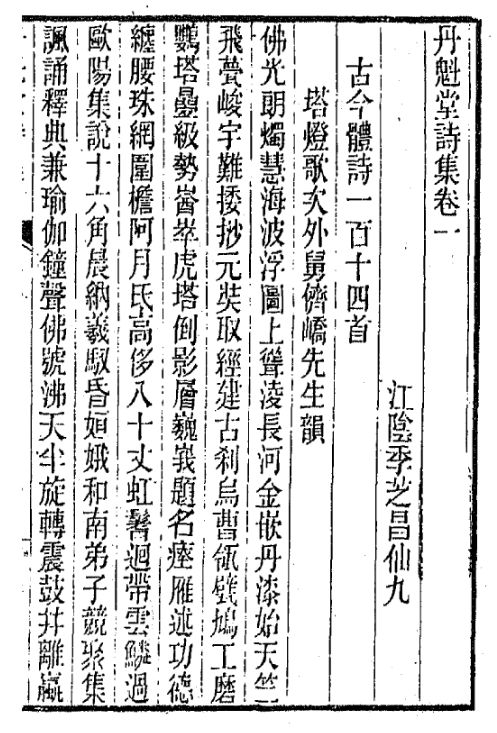 丹魁堂詩集卷一
江陰季芝昌仙九
古今體詩一百十四首
塔燈歌次外舅儕嶠先生韻
佛光朗燭慧海波浮圖上聳淩長河金嵌丹漆始天竺
飛甍峻宇難摟抄元奘取經建古刹烏曹瓴甓鳩工磨
鸚塔疊級勢峇峷虎塔倒影層巍峩題名瘞雁述功德
纏腰珠網圍檐阿月氏高侈八十丈虹鬐迴帶雲鱗過
歐陽集說十六角晨納羲馭昏姮娥和南弟子競聚集
諷誦釋典兼瑜伽鐘聲佛號沸天半旋轉震鼓井離嬴